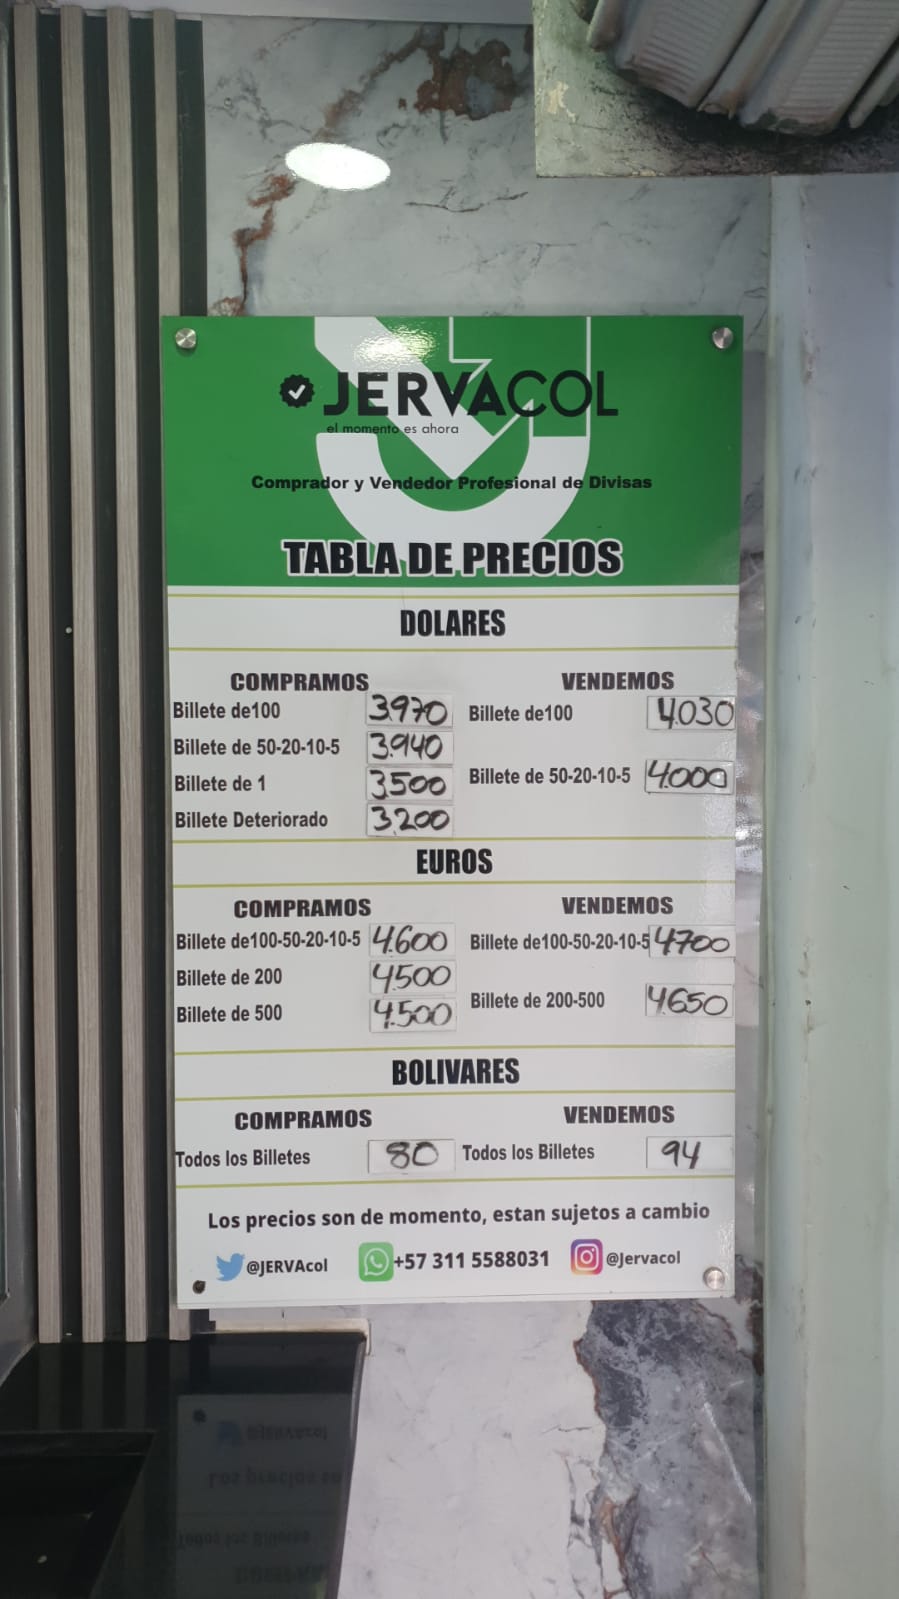 JERVACOL
el momento es ahora
Comprador y Vendedor Profesional de Divisas
TABLA DE PRECIOS
DOLARES
COMPRAMOS
Billete de100 3.970
Billete de 50-20-10-5 3.940
Billete de 1 3.500
Billete Deteriorado 3.200
VENDEMOS
Billete de100 4.030
Billete de 50-20-10-5 4.000
EUROS
COMPRAMOS
Billete de100-50-20-10-5 4.600
Billete de 200 4.500
Billete de 500 4.500
VENDEMOS
Billete de100-50-20-10-5 4700
Billete de 200-500 4.650
BOLIVARES
COMPRAMOS
Todos los Billetes 80
VENDEMOS
Todos los Billetes 94
Los precios son de momento, estan sujetos a cambio
@JERVAcol +57 311 5588031 @Jervacol